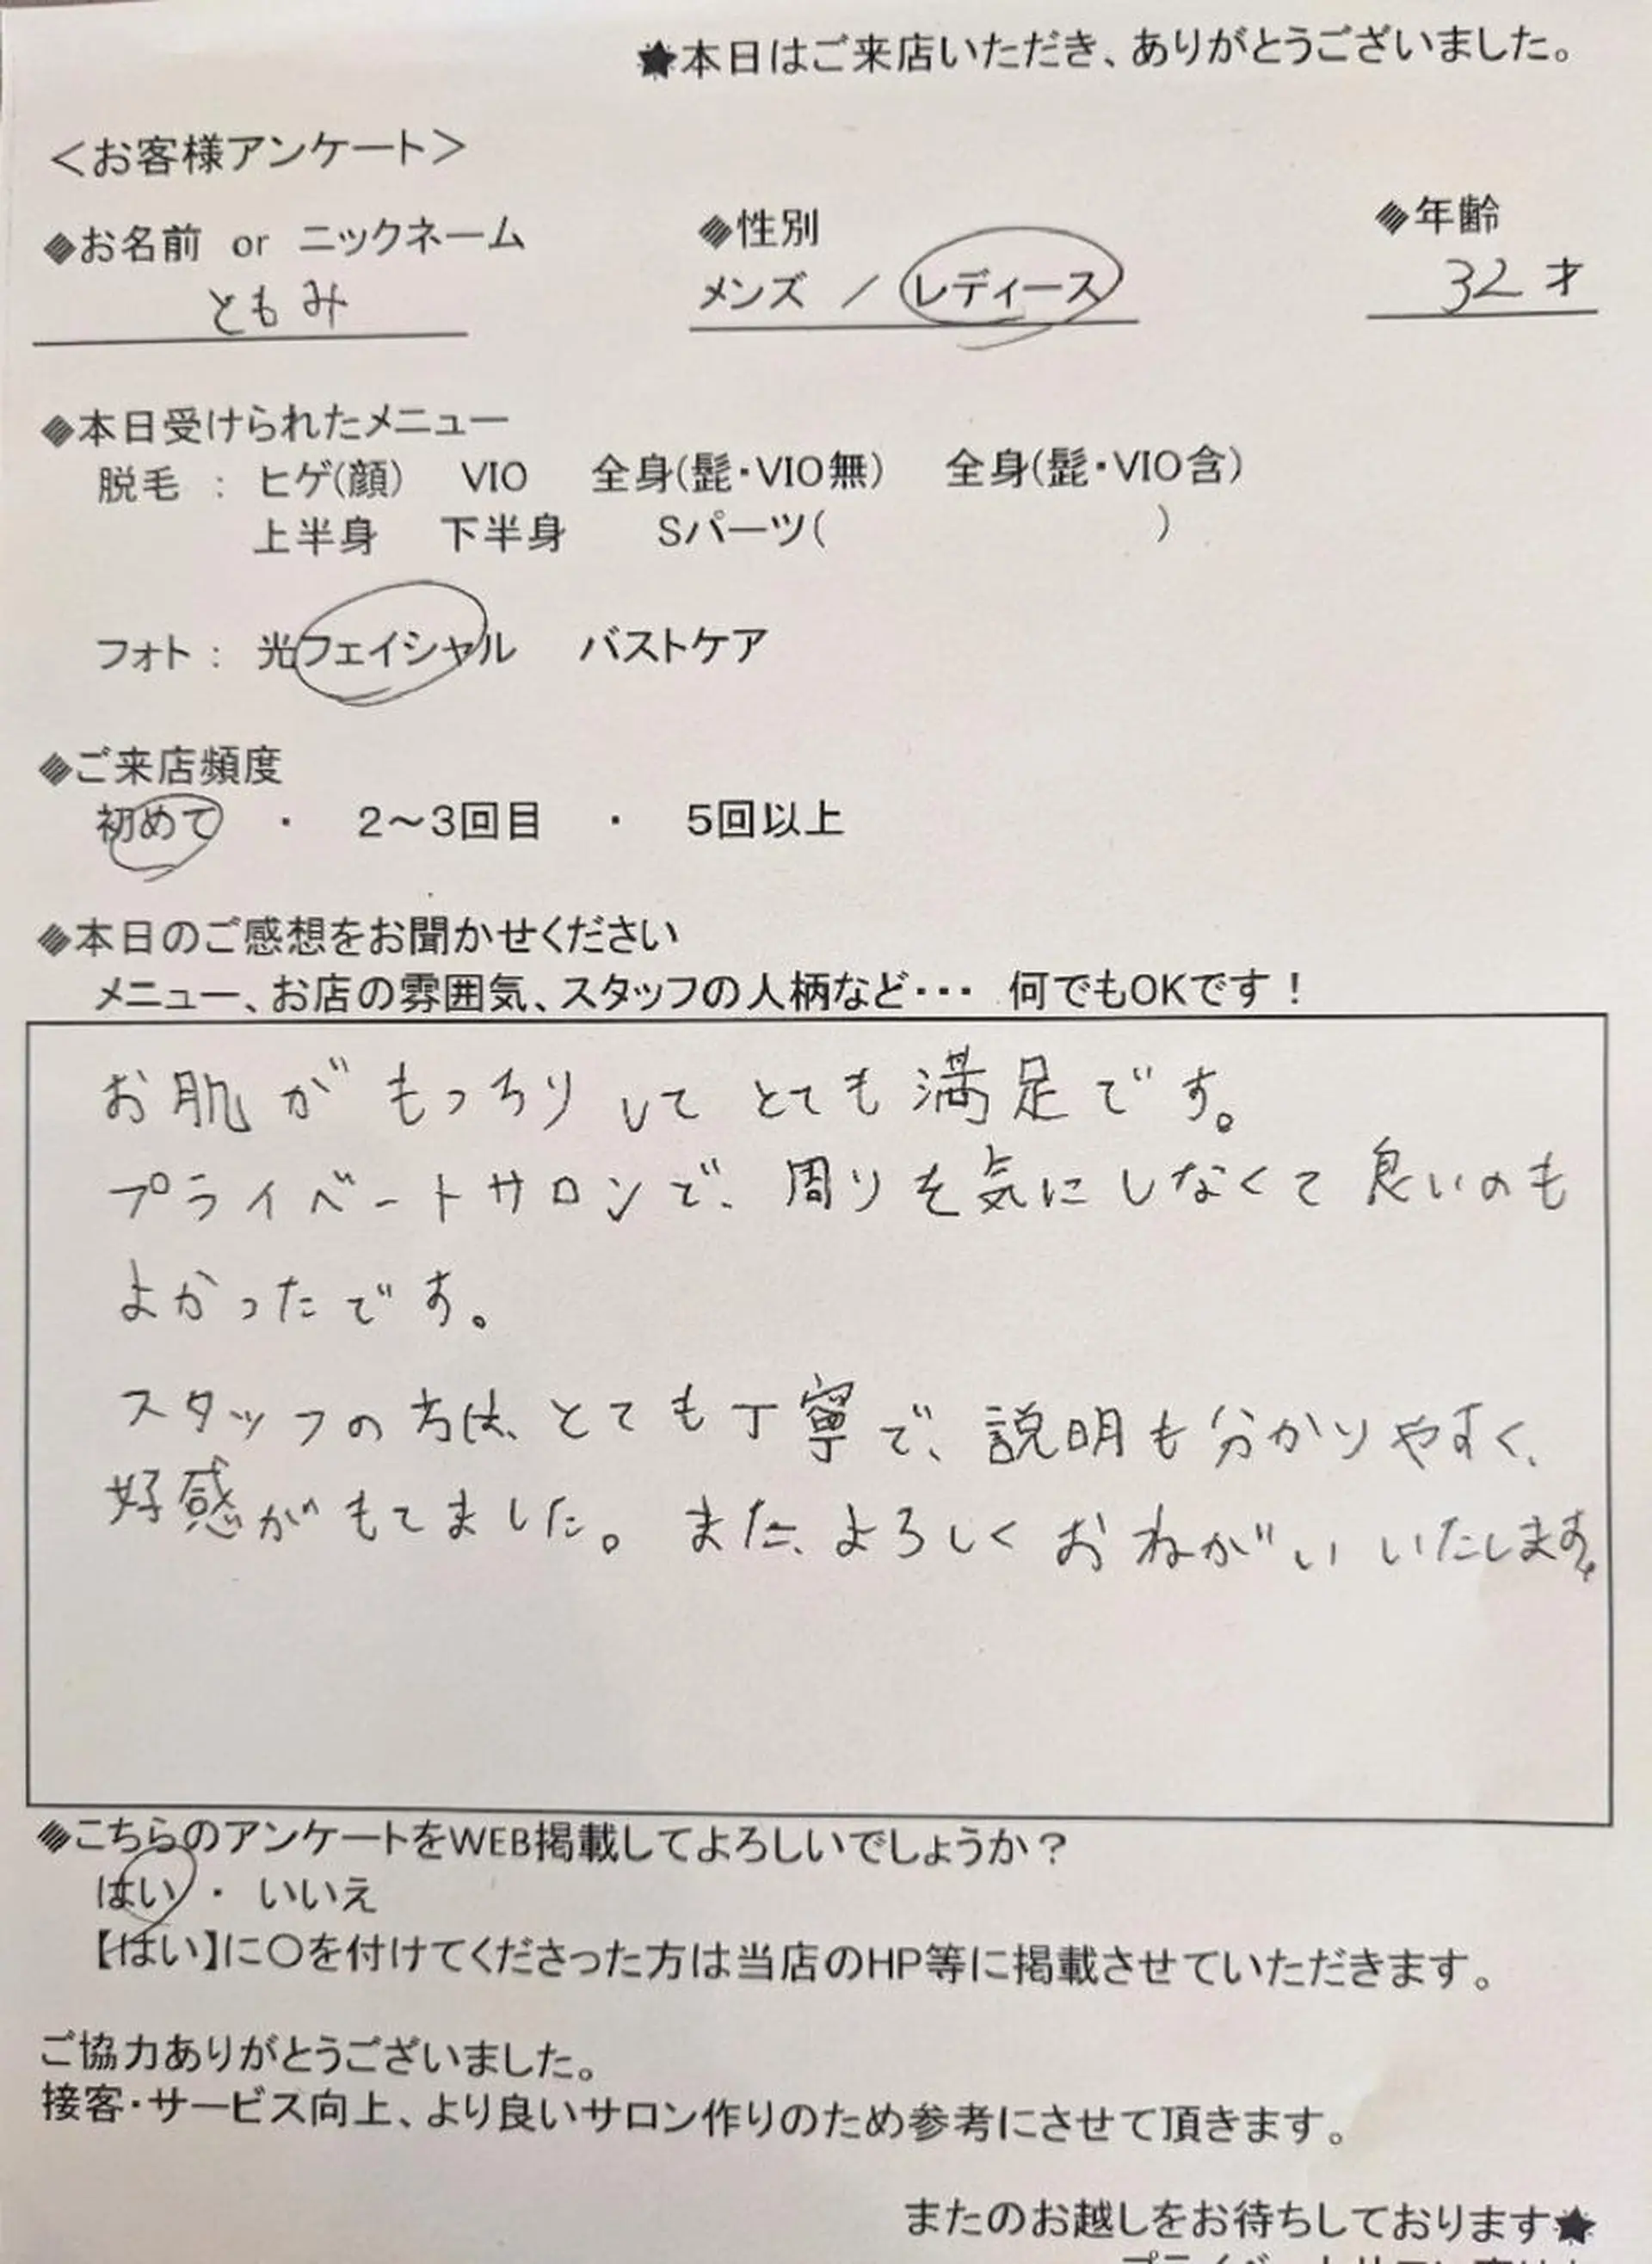 ★本日はご来店いただき、ありがとうございました。
＜お客様アンケート＞
◆お名前 or ニックネーム ◆性別 ◆年齢
ともみ メンズ ／ レディース 32才
◆本日受けられたメニュー
脱毛 ： ヒゲ(顔) VIO 全身(髭・VIO無) 全身(髭・VIO含)
上半身 下半身 Sパーツ( )
フォト： 光フェイシャル バストケア
◆ご来店頻度
初めて ・ 2～3回目 ・ 5回以上
◆本日のご感想をお聞かせください
メニュー、お店の雰囲気、スタッフの人柄など・・・ 何でもOKです！
お肌がもっちりしてとても満足です。
プライベートサロンで、周りを気にしなくて良いのも
よかったです。
スタッフの方は、とても丁寧で、説明も分かりやすく、
好感がもてました。また、よろしくおねがいいたします。
◆こちらのアンケートをWEB掲載してよろしいでしょうか？
はい ・ いいえ
【はい】に〇を付けてくださった方は当店のHP等に掲載させていただきます。
ご協力ありがとうございました。
接客・サービス向上、より良いサロン作りのため参考にさせて頂きます。
またのお越しをお待ちしております★